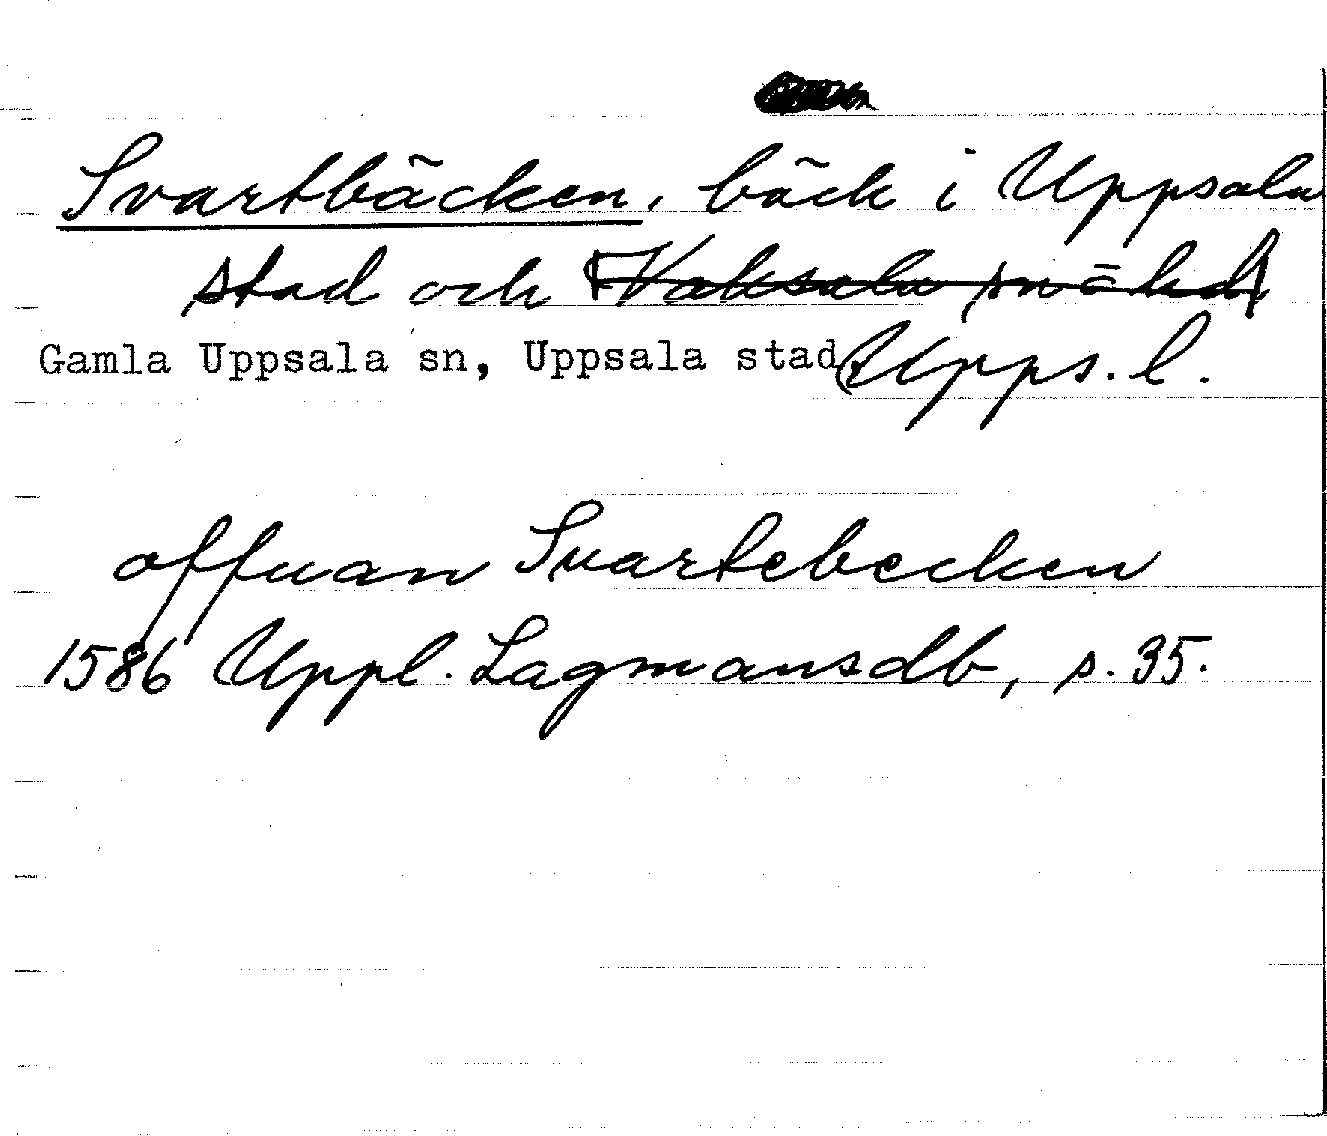 Svartbäcken, bäck i Uppsala
stad och Vaksala sn o hd
Gamla Uppsala sn, Uppsala stad, Upps. l.
offuan Svartebecken
1586 Uppl. Lagmansdb, s. 35.